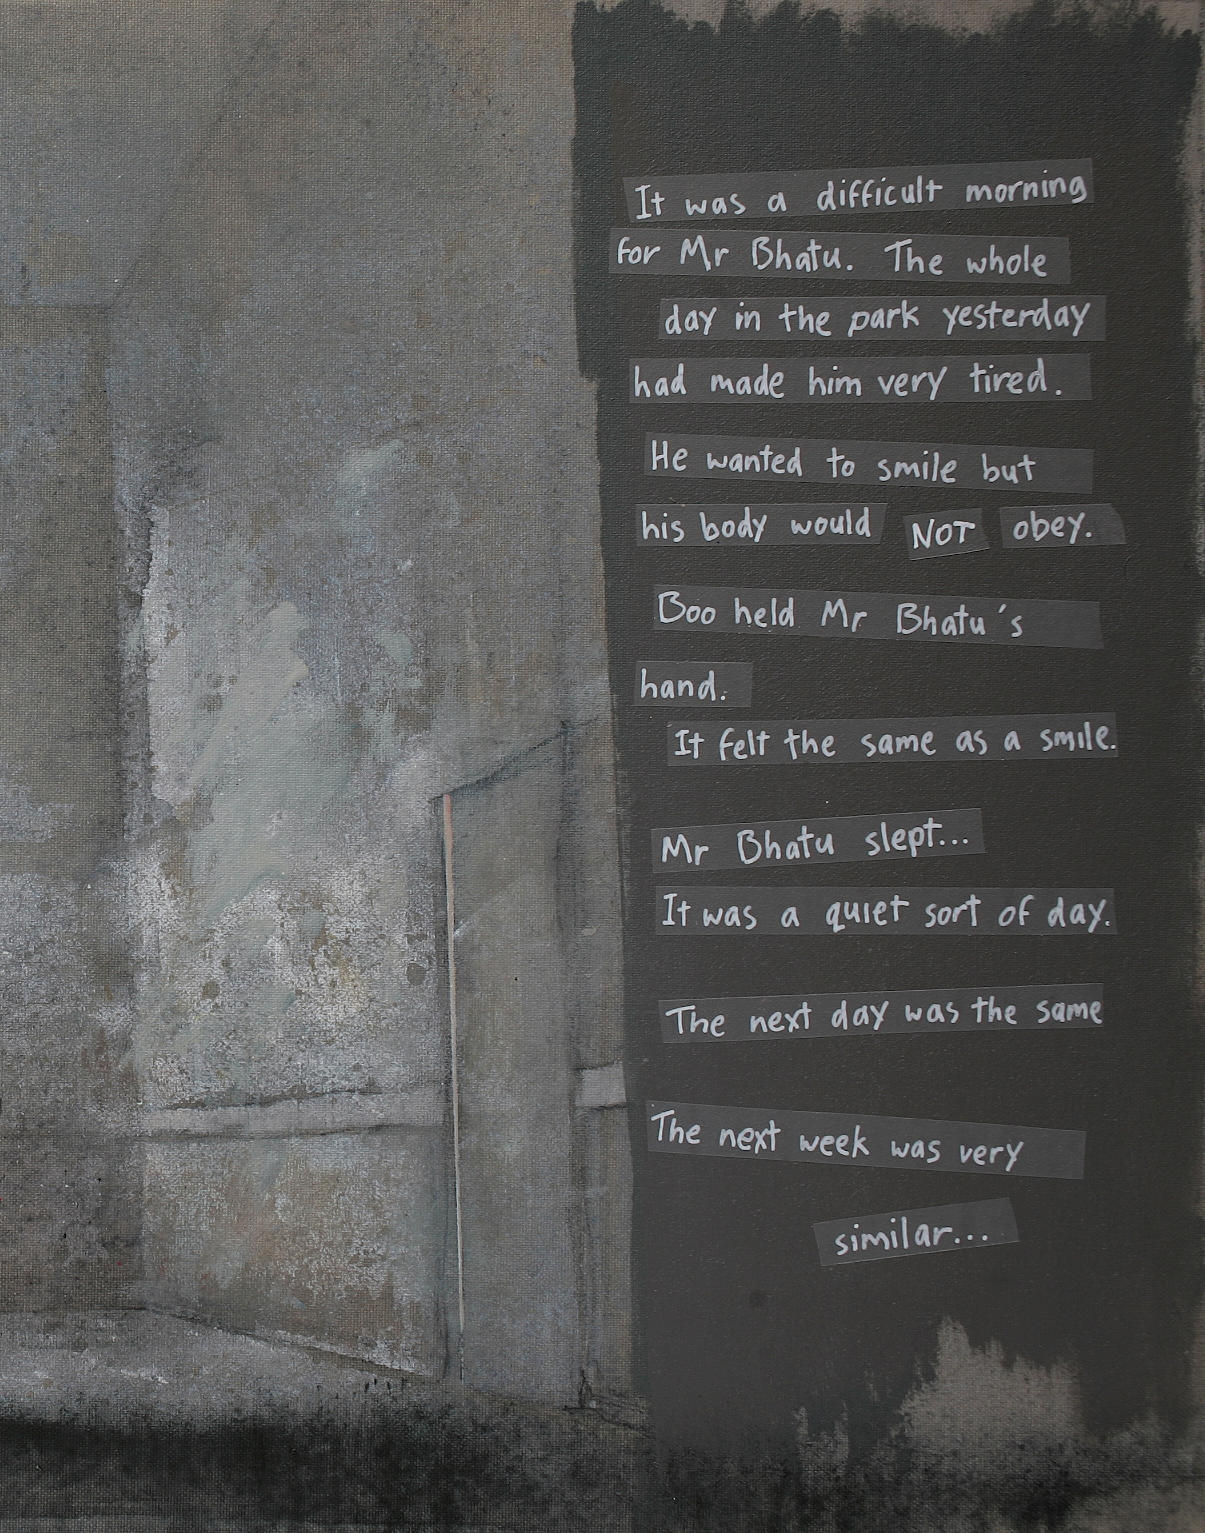 It was a difficult morning
for Mr Bhatu. The whole
day in the park yesterday
had made him very tired.
He wanted to smile but
his body would NOT obey.
Boo held Mr Bhatu's
hand.
It felt the same as a smile.
Mr Bhatu slept...
It was a quiet sort of day.
The next day was the same
The next week was very
similar...